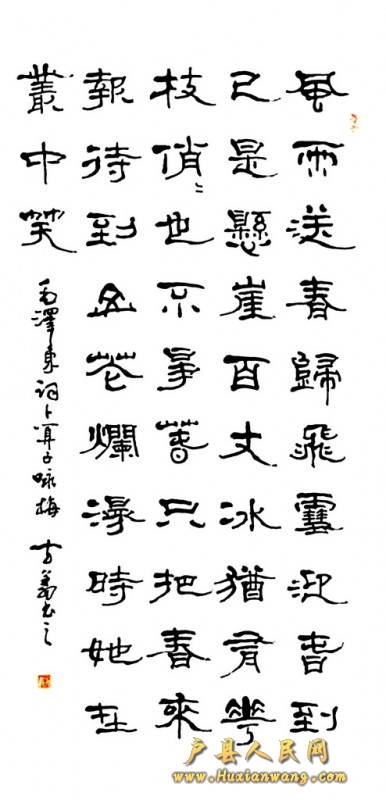 風雨送春歸飛雪迎春到
已是懸崖百丈冰猶有花
枝俏〻也不爭春只把春來
報待到山花爛漫時她在
叢中笑
毛澤東詞卜算子咏梅 方書之
户县人民网
www.Huxianwang.com